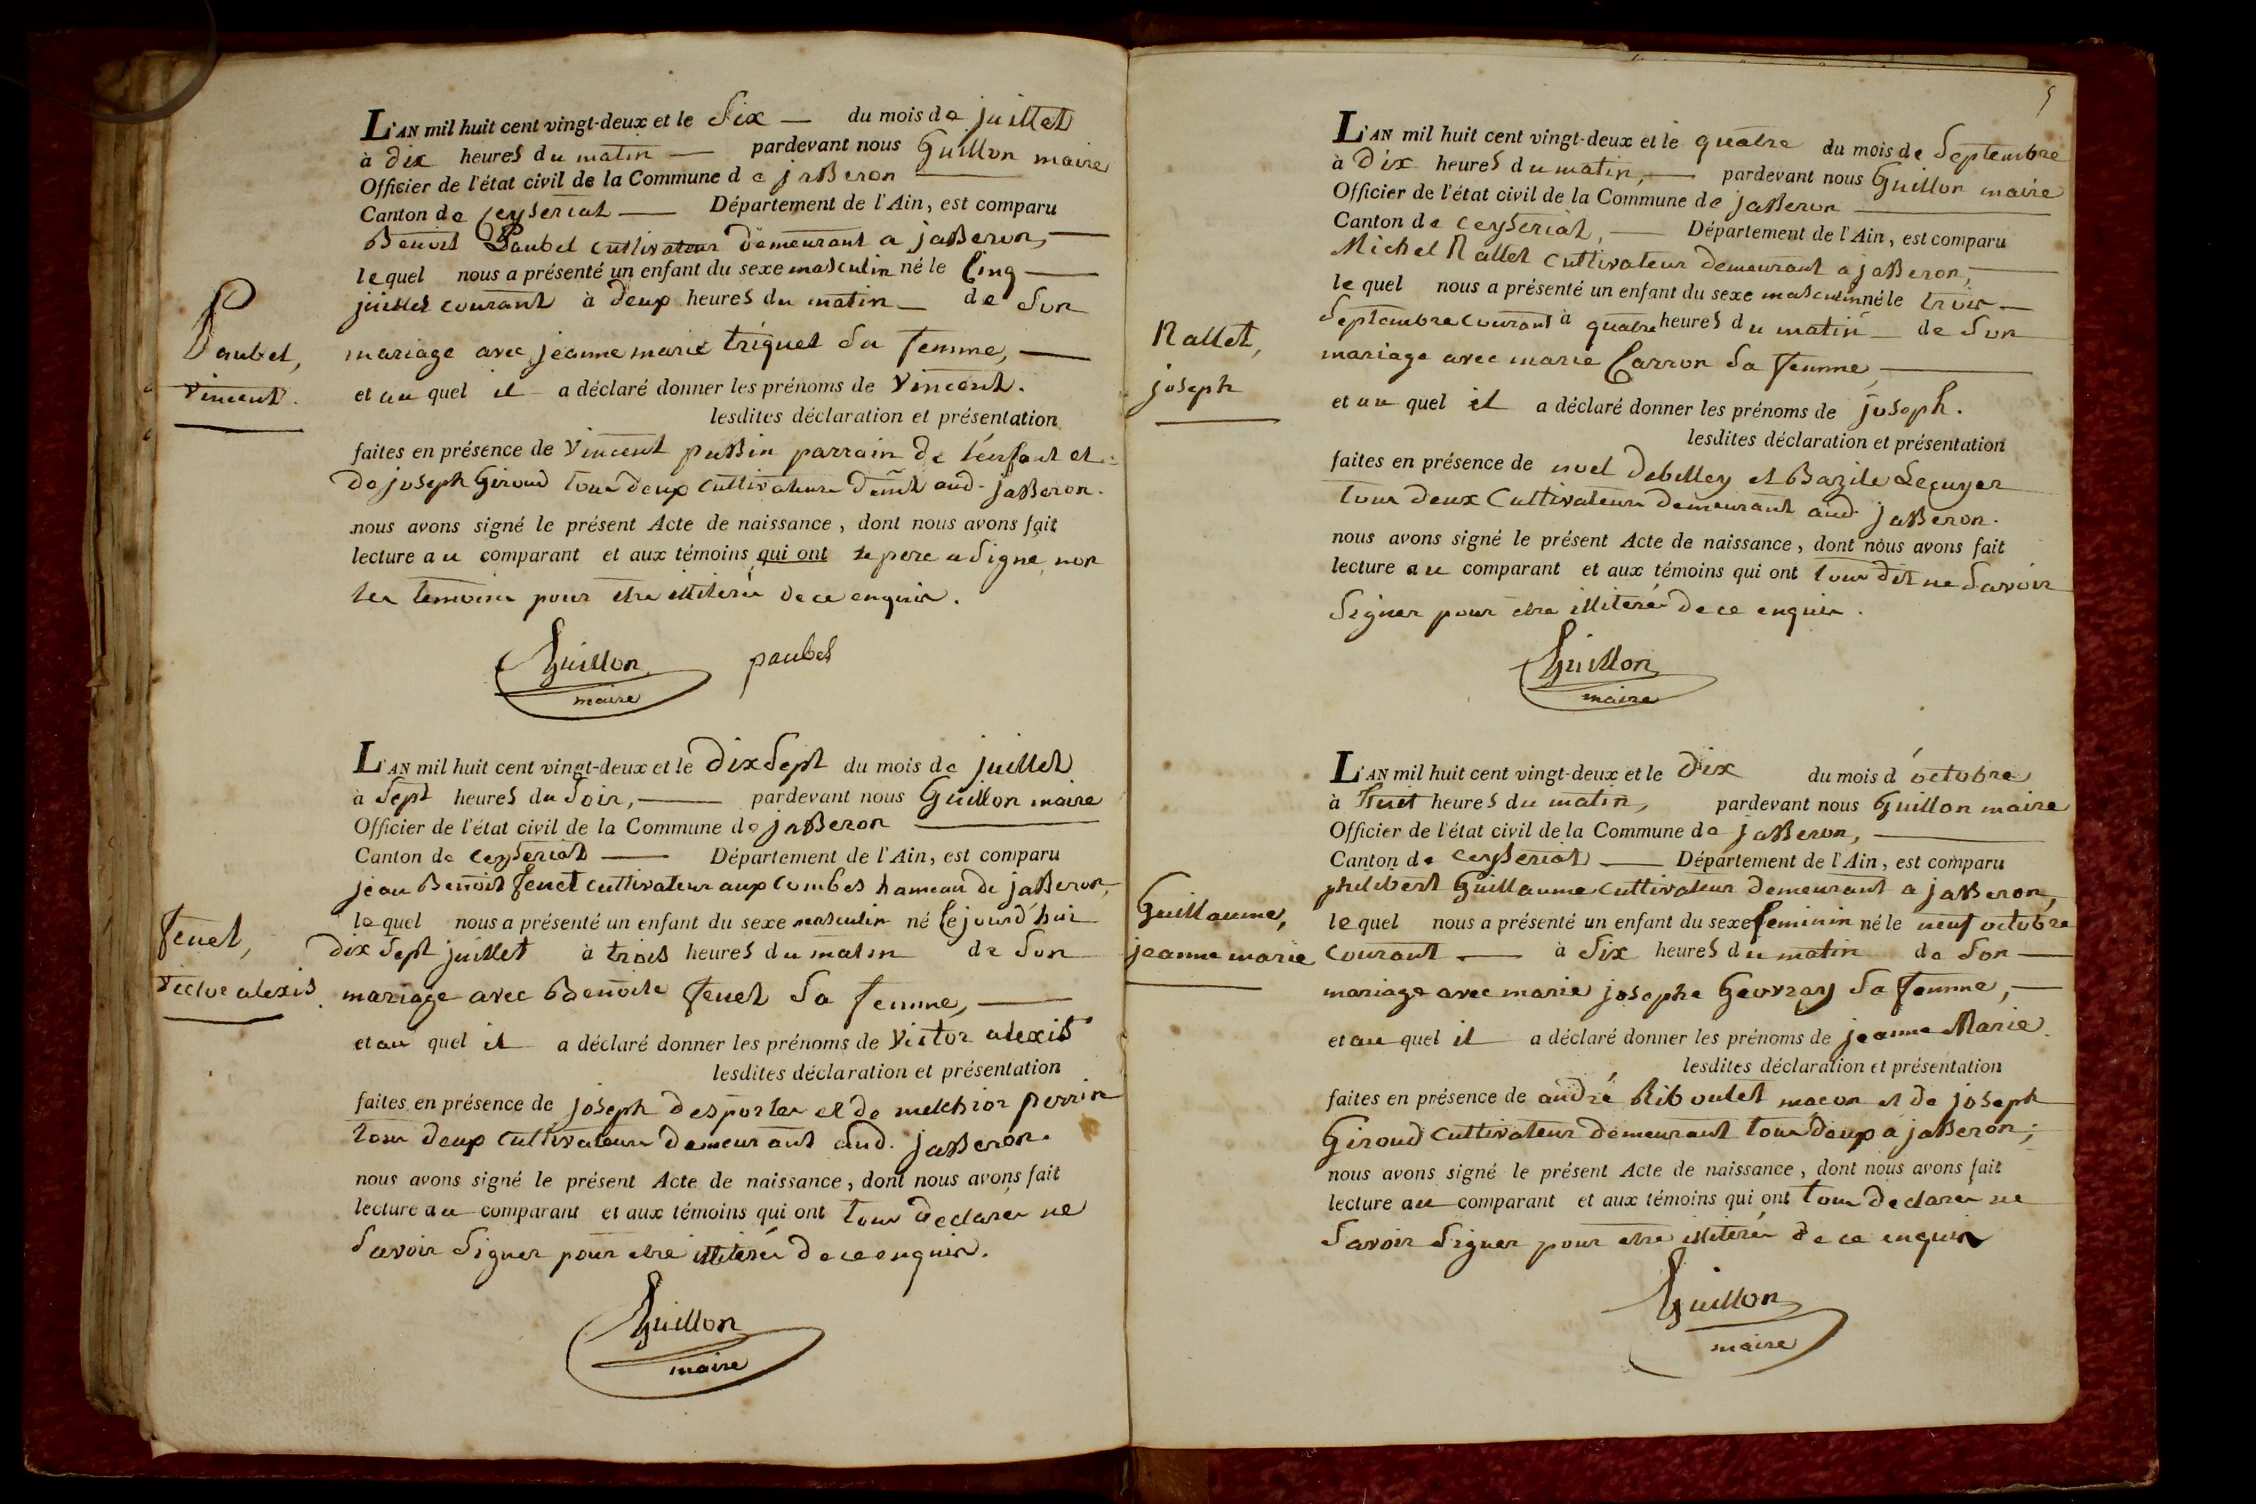 L'AN mil huit cent vingt-deux et le Six — du mois de juillet
à dix heures du matin — pardevant nous Guillon maire
Officier de l'état civil de la Commune de jasseron
Canton de Ceyseriat — Département de l'Ain, est comparu
Benoit Paubel cultivateur demeurant a jasseron, —
lequel nous a présenté un enfant du sexe masculin né le Cinq —
juillet courant à deux heures du matin — de Son
Paubel,
mariage avec jeanne marie triquet Sa femme, —
Vincent.
et au quel il a déclaré donner les prénoms de Vincent.
lesdites déclaration et présentation
faites en présence de Vincent pussin parrain de l'enfant et
de joseph Giroud tous deux cultivateurs demt aud. jasseron.
nous avons signé le présent Acte de naissance, dont nous avons fait
lecture au comparant et aux témoins qui ont le pere a Signe, non
les temoins pour etre illiteré de ce enquis.
Guillon paubel
maire
L'AN mil huit cent vingt-deux et le dix Sept du mois de juillet
à Sept heures du Soir, — pardevant nous Guillon maire
Officier de l'état civil de la Commune de jasseron
Canton de Ceyseriat — Département de l'Ain, est comparu
jean Benoit fenet cultivateur aux Combes hameau de jasseron,
lequel nous a présenté un enfant du sexe masculin né Cejourd'hui
fenet,
dix Sept juillet à trois heures du matin de Son
Victor alexis
mariage avec Benoite fenet Sa femme, —
et au quel il a déclaré donner les prénoms de Victor alexis
lesdites déclaration et présentation
faites en présence de joseph desportes et de melchior perrin
tous deux cultivateurs demeurant aud. jasseron.
nous avons signé le présent Acte de naissance, dont nous avons fait
lecture au comparant et aux témoins qui ont tous declaré ne
Savoir Signer pour etre illiteré de ce enquis.
Guillon
maire
5
L'AN mil huit cent vingt-deux et le quatre du mois de Septembre
à dix heures du matin, — pardevant nous Guillon maire
Officier de l'état civil de la Commune de jasseron
Canton de Ceyseriat, — Département de l'Ain, est comparu
Michel Nallet cultivateur demeurant a jasseron, —
lequel nous a présenté un enfant du sexe masculin né le trois —
Septembre courant à quatre heures du matin — de Son
Nallet,
mariage avec marie Carron Sa femme, —
joseph
et au quel il a déclaré donner les prénoms de joseph.
lesdites déclaration et présentation
faites en présence de noel debelley et Bazile Leçuyer
tous deux Cultivateurs demeurant aud. jasseron.
nous avons signé le présent Acte de naissance, dont nous avons fait
lecture au comparant et aux témoins qui ont tous dit ne Savoir
Signer pour etre illiteré de ce enquis.
Guillon
maire
L'AN mil huit cent vingt-deux et le dix du mois d'octobre
à huit heures du matin, pardevant nous Guillon maire
Officier de l'état civil de la Commune de jasseron, —
Canton de Ceyseriat — Département de l'Ain, est comparu
philibert Guillaume cultivateur demeurant a jasseron,
Guillaume,
lequel nous a présenté un enfant du sexe feminin né le neuf octobre
jeanne marie
courant — à Six heures du matin de Son —
mariage avec marie josephe Gevrzay Sa femme, —
et au quel il a déclaré donner les prénoms de jeanne Marie.
lesdites déclaration et présentation
faites en présence de andré Riboulet macon et de joseph
Giroud cultivateur demeurant tous deux a jasseron;
nous avons signé le présent Acte de naissance, dont nous avons fait
lecture au comparant et aux témoins qui ont tous declaré ne
Savoir Signer pour etre illiteré de ce enquis
Guillon
maire